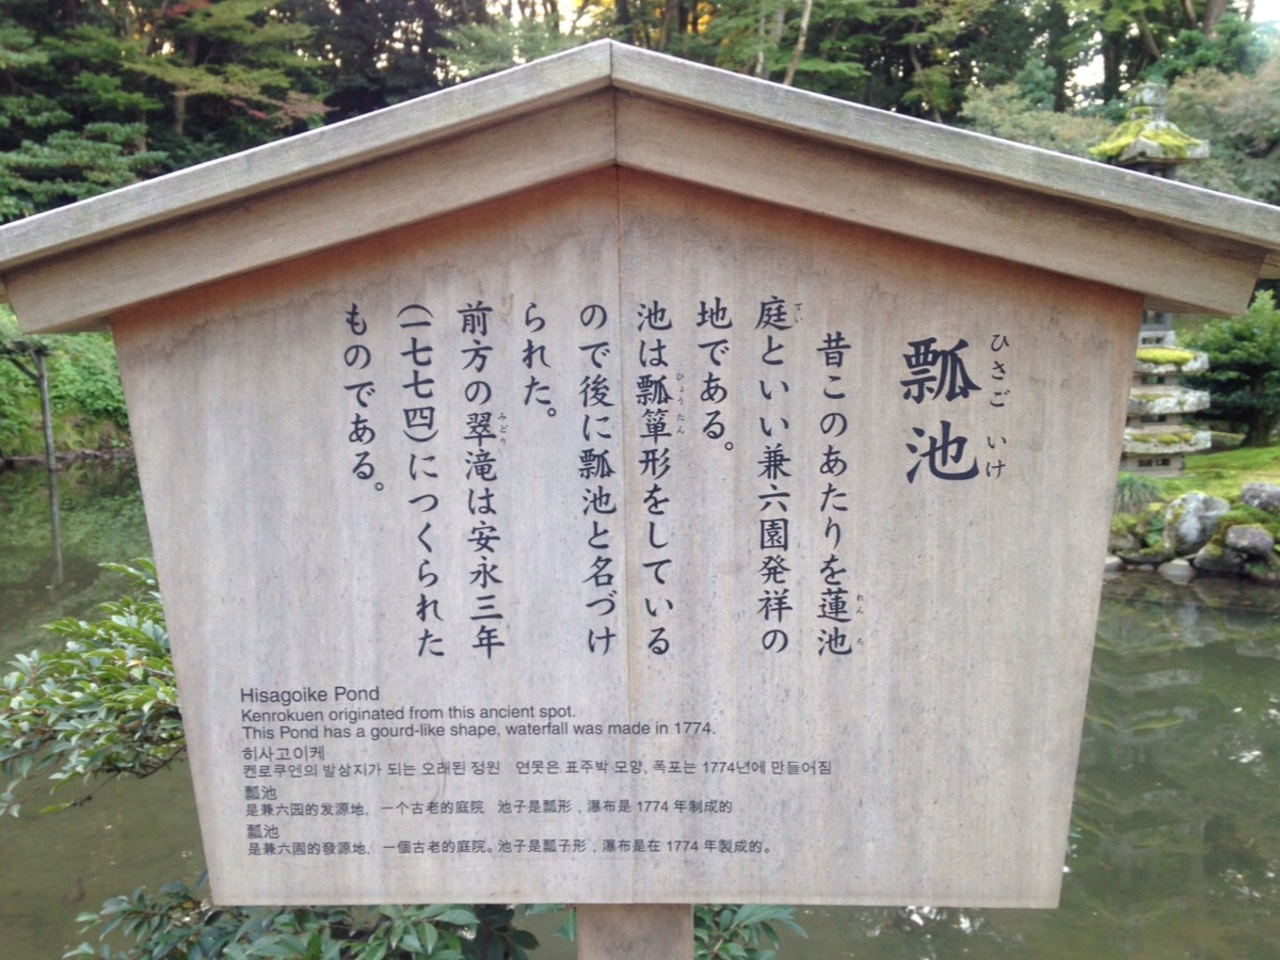 瓢池
ひさご いけ
昔このあたりを蓮池
れんち
庭といい兼六園発祥の
てい
地である。
池は瓢箪形をしている
ひょうたん
ので後に瓢池と名づけ
られた。
前方の翠滝は安永三年
みどり
(一七七四)につくられた
ものである。
Hisagoike Pond
Kenrokuen originated from this ancient spot.
This Pond has a gourd-like shape, waterfall was made in 1774.
히사고이케
켄로쿠엔의 발상지가 되는 오래된 정원 연못은 표주박 모양, 폭포는 1774년에 만들어짐
瓢池
是兼六园的发源地, 一个古老的庭院 池子是瓢形,瀑布是 1774 年制成的
瓢池
是兼六園的發源地, 一個古老的庭院。池子是瓢子形,瀑布是在 1774 年製成的。